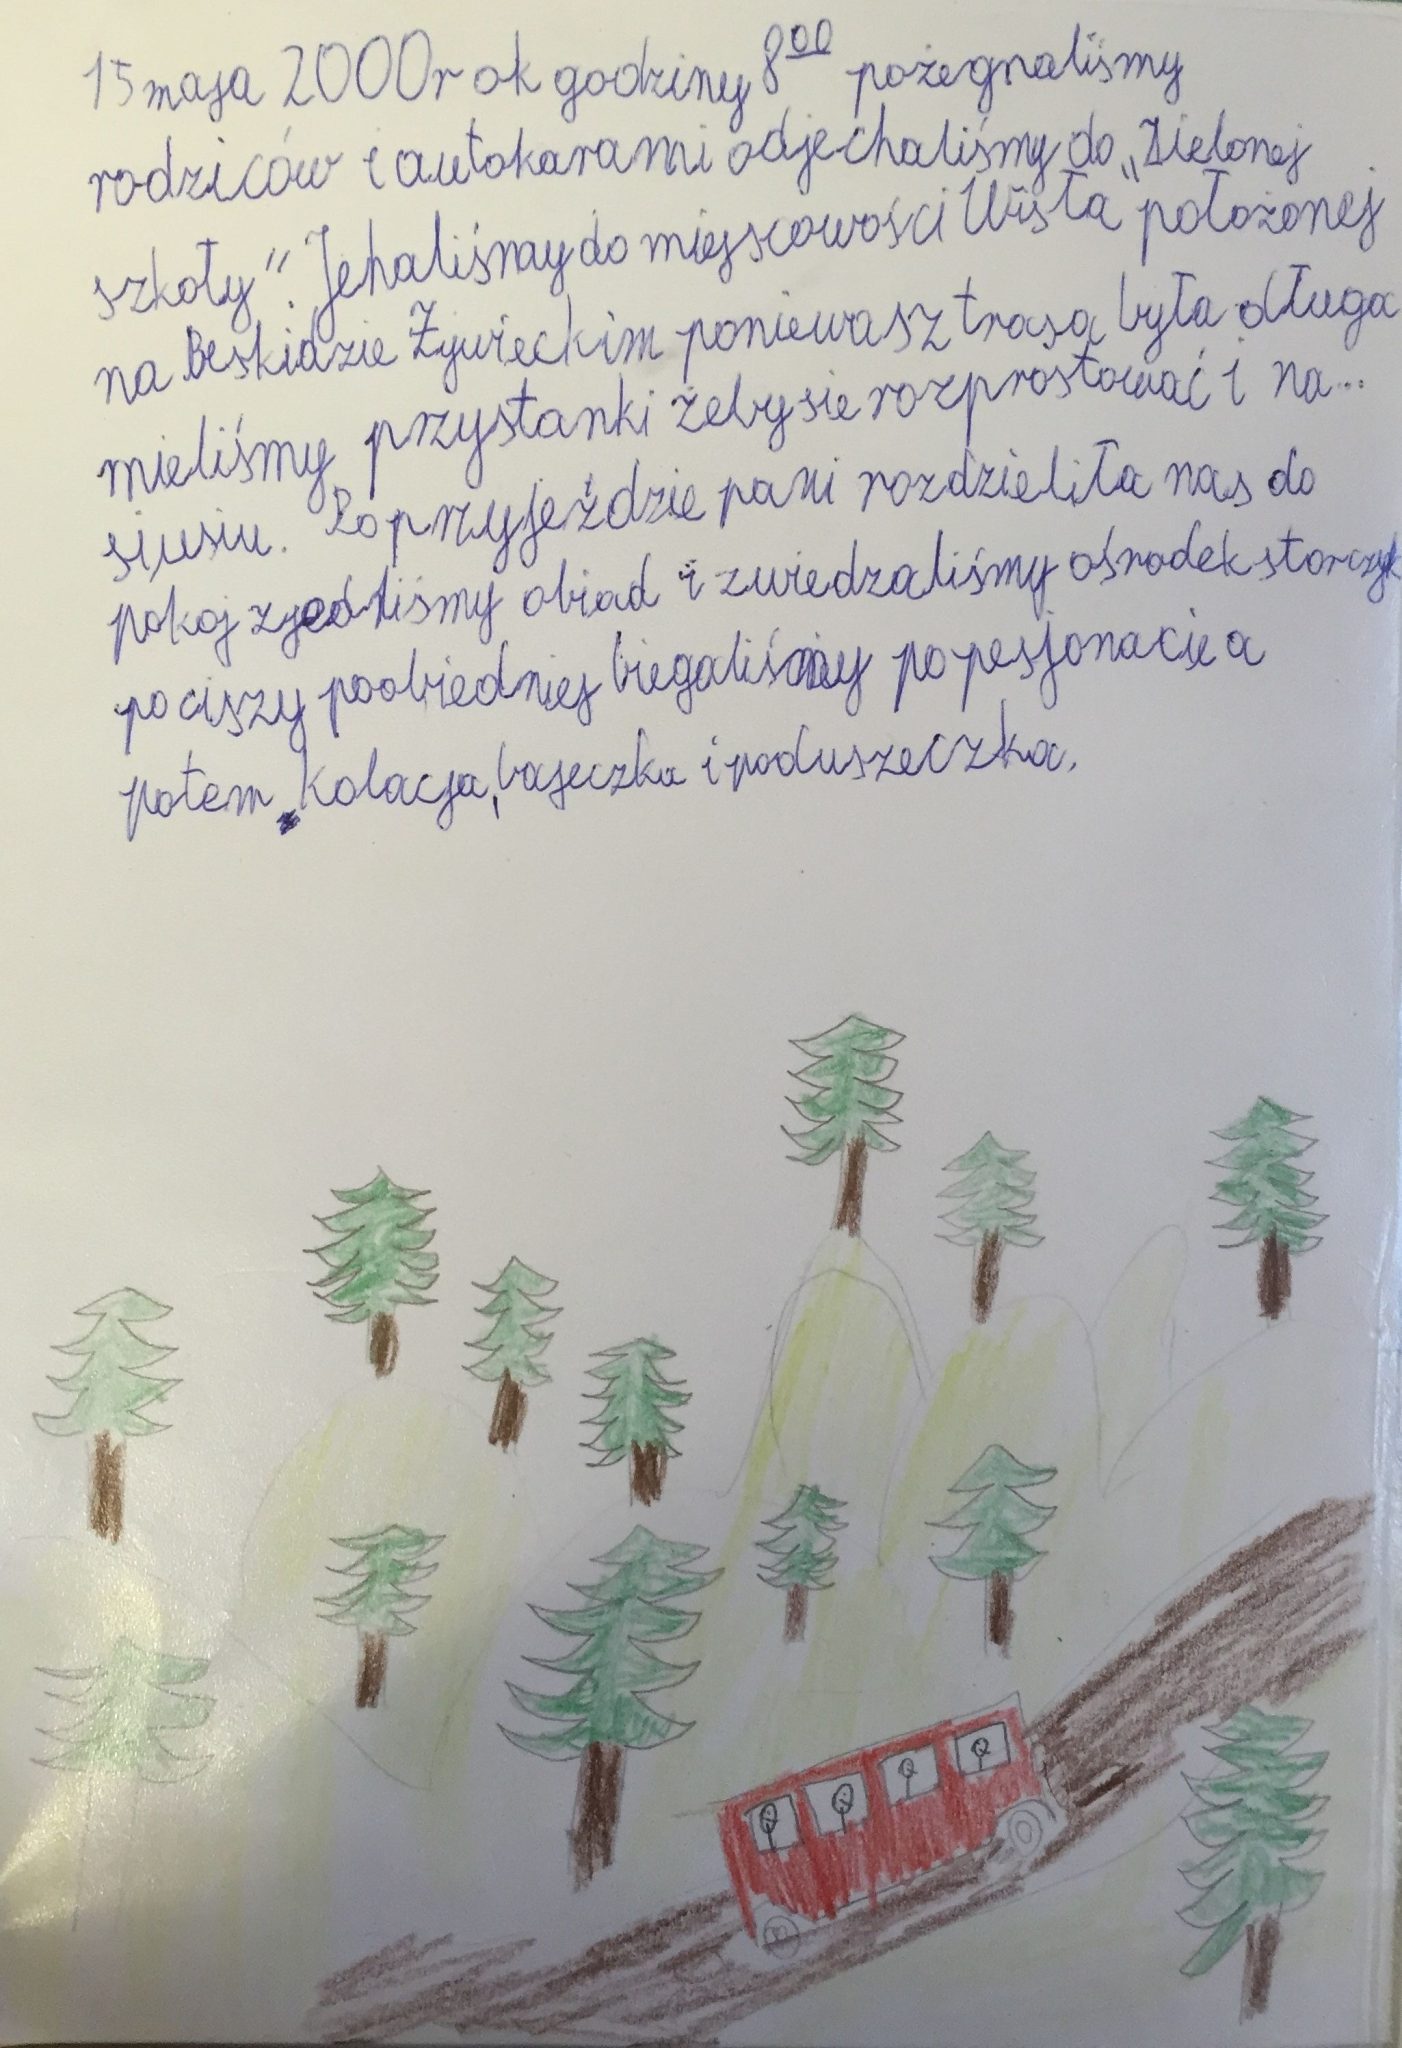 15 maja 2000r ok godziny 8⁰⁰ pożegnaliśmy
rodziców i autokarami odjechaliśmy do „Zielonej
szkoły". Jehaliśmy do miejscowości Wisła położonej
na Beskidzie Żywieckim poniewasz trasa była długa
mieliśmy przystanki żeby sie rozprostować i na...
siusiu. Po przyjeździe pani rozdzieliła nas do
pokoj zjedliśmy obiad i zwiedzaliśmy ośrodek storczyk
po ciszy poobiedniej biegaliśmy po pesjonacie a
potem kolacja, bajeczka i poduszeczka.